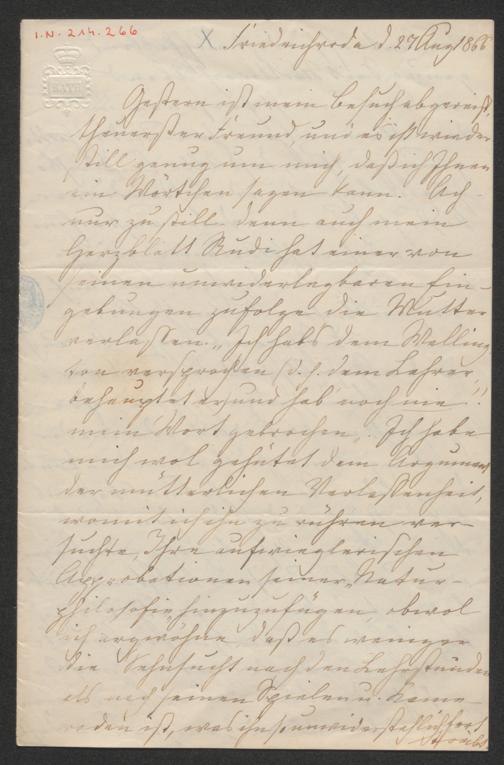 I.N. 214.266
X Friedrichroda d. 27 Aug 1866
BATH
Gestern ist mein Besuch abgereist,
theuerster Freund, und es ist wieder
still genug um mich, daß ich Ihnen
ein Wörtchen sagen kann. Ach
nur zu still denn auch mein
Herzblatt Rudi hat einer von
seinen unwiderlegbaren Ein-
gebungen zufolge die Mutter
verlassen. „Ich habs dem Welling
ton versprochen (d. h. dem Lehrer)
behauptet er und hab noch nie
mein Wort gebrochen." Ich habe
mich wol gehütet dem Argument
der mütterlichen Verlassenheit,
womit ich ihn zu rühren ver-
suchte, Ihre aufwieglerischen
Approbationen seiner Natur-
philosofie hinzuzufügen, obwol
ich argwöhne daß es weniger
die Sehnsucht nach den Lehrstunden
als nach seinen Spielen u. Kame-
raden ist, was ihn so unwiderstehlich fort